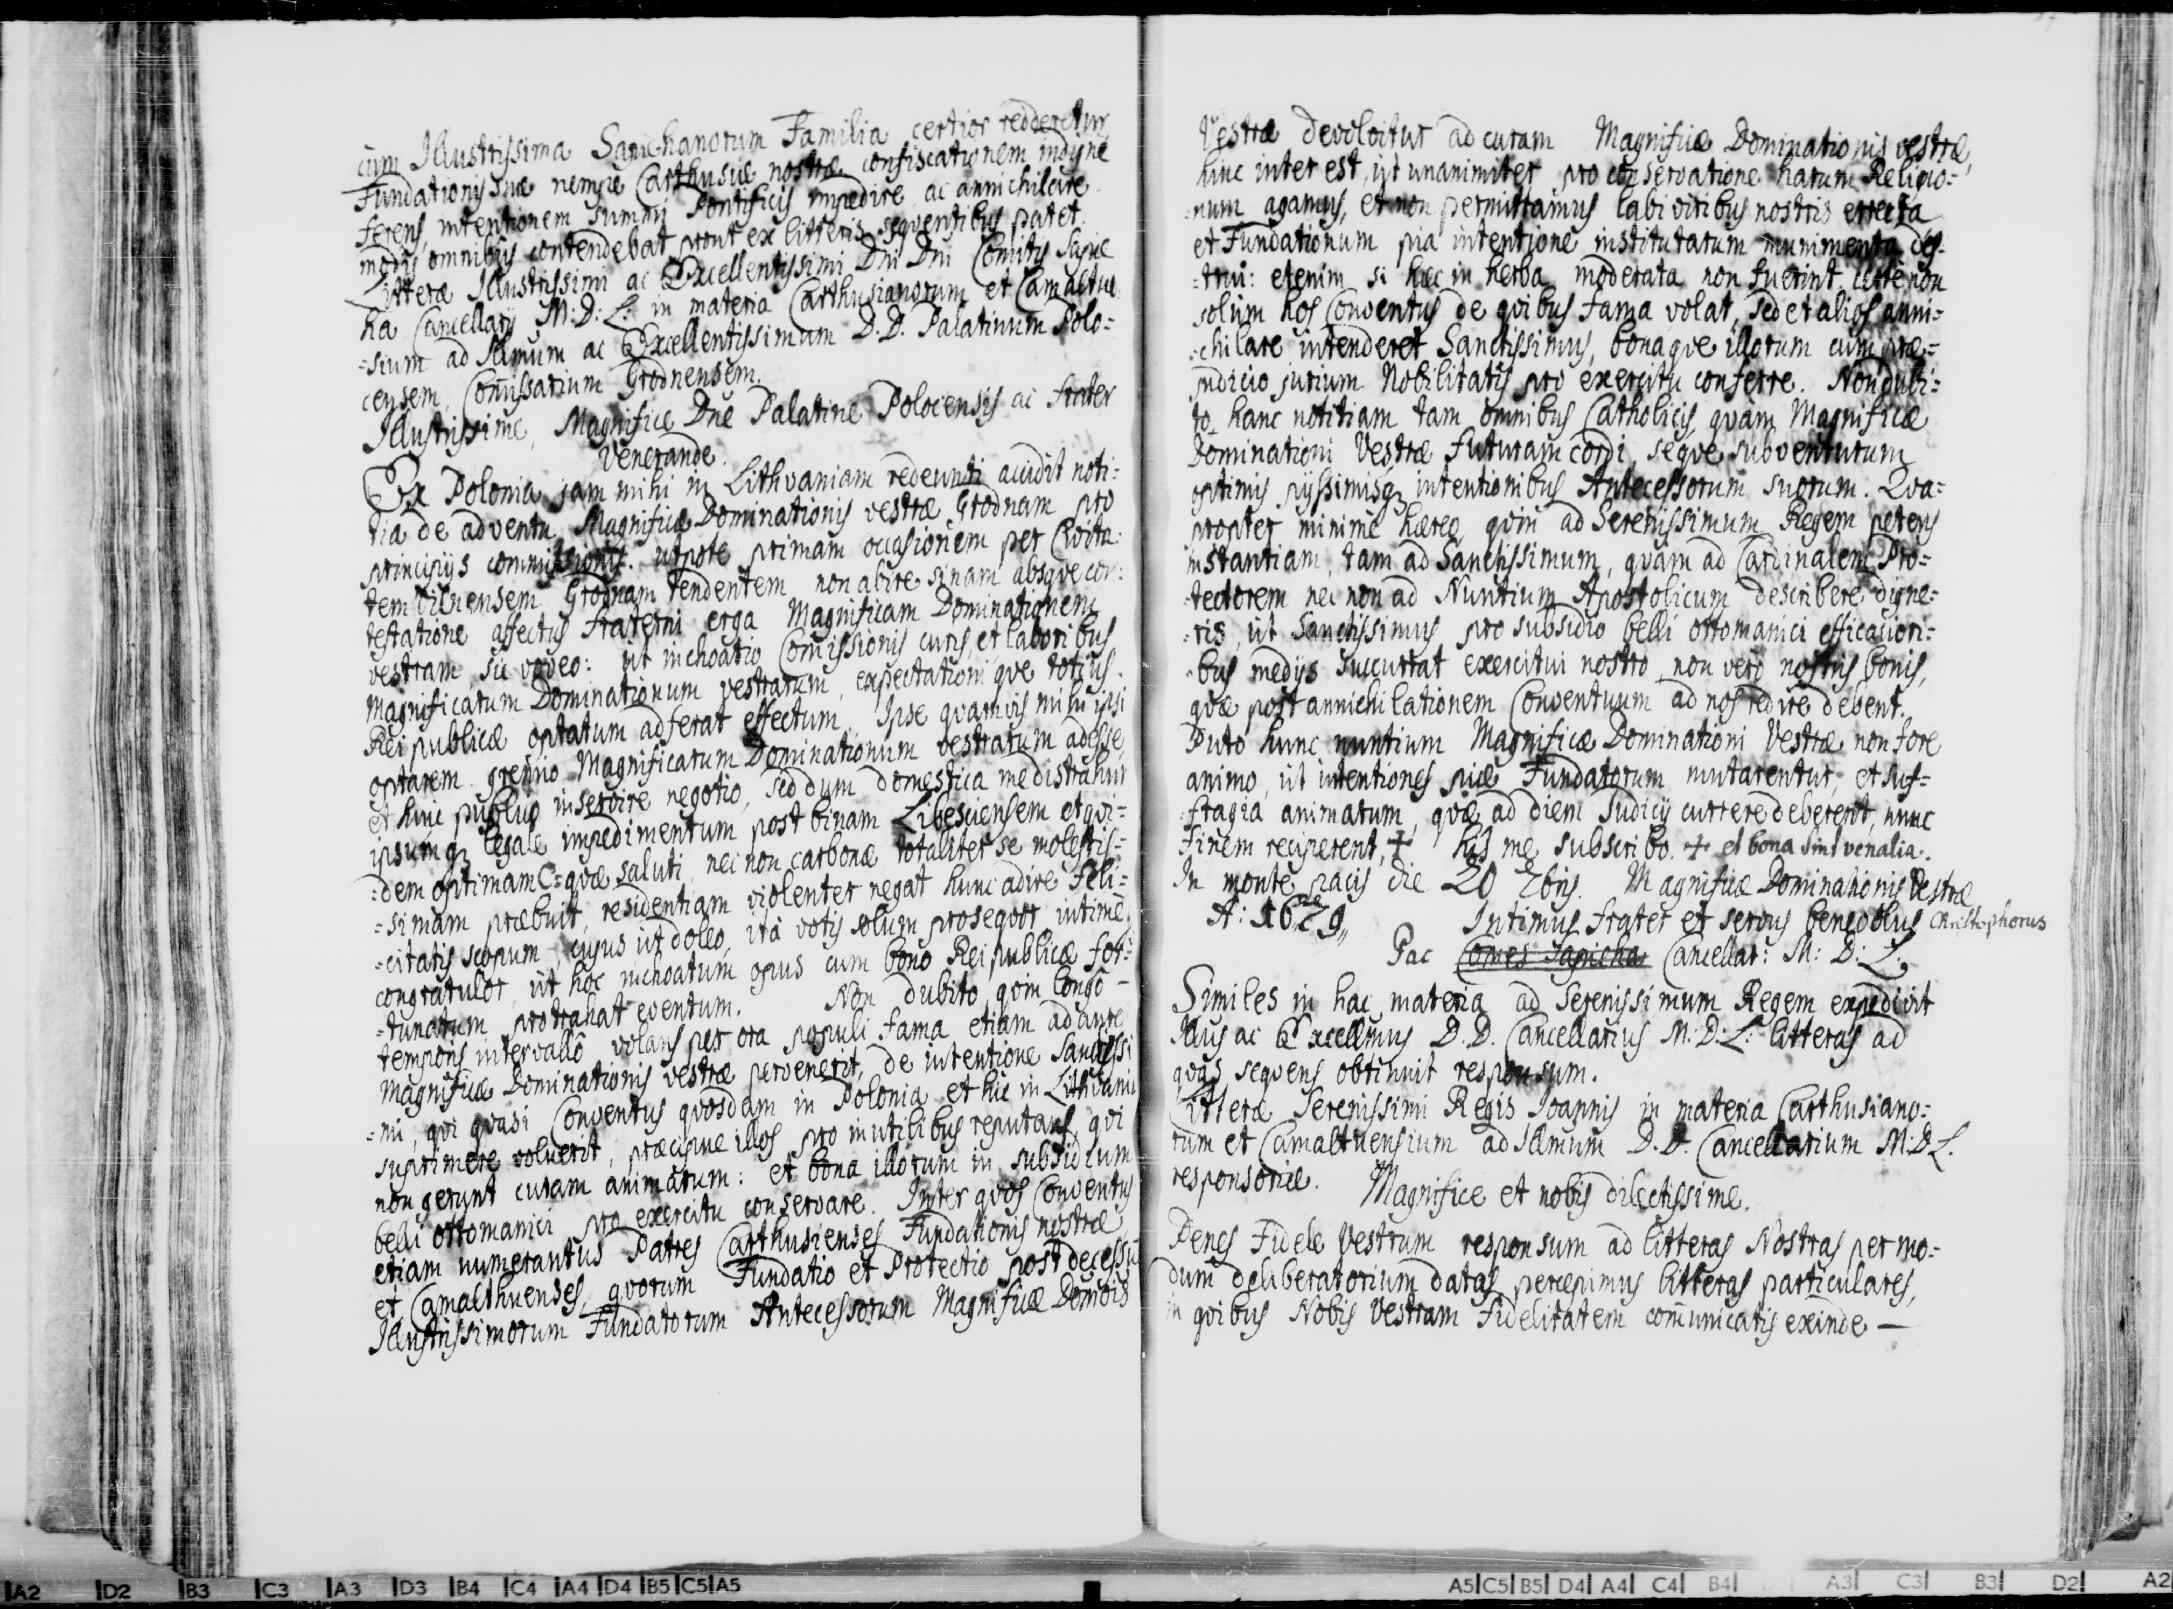 cum Illustrissima Sapiehanorum Familia certior redderetur
Fundationis suæ nempe Carthusiæ nostræ confiscationem indigne
ferens, intentionem summi Pontificis impedire ac annichilare
modis omnibus contendebat prout ex litteris sequentibus patet.
Litteræ Illustrissimi ac Excellentissimi Dni Dni Comitis Sapie
ha Cancellarij M: D: L: in materia Carthusianorum et Camaltue
=sium ad Illmum ac Excellentissimum D. D. Palatinum Polo=
censem, Comissarium Grodnensem.
Illustrissime, Magnifice Dne Palatine Polocensis ac frater
Venerande.
Ex Polonia jam mihi in Lithvaniam redeunti accidit noti=
tia de adventu Magnificæ Dominationis vestræ Grodnam pro
principijs commissionis. utpote primam occasionem per Civita=
tem Vilnensem Grodnam tendentem non abire sinam absque con:
testatione affectus fraterni erga Magnificam Dominationem
vestram sic voveo: ut inchoatio Comissionis curis, et laboribus
Magnificarum Dominationum vestrarum, expectationi que totius
Rei publicæ optatum adferat effectum. Ipse quamvis mihi ipsi
optarem gremio Magnificarum Dominationum vestrarum adesse
et huic publico inservire negotio, sed dum domestica me distrahunt
ipsumq; legale impedimentum post binam Libescensem et qui=
=dem optimam C=quæ saluti nec non carbonæ totaliter se molestis=
=simam præbuit, residentiam violenter negat hunc adire feli=
=citatis scopum, cujus ut doleo, ità votis solum prosequor, intime
congratulor, ut hoc inchoatum opus cum bono Rei publicæ for=
=tunatum protrahat eventum. Non dubito, quin longo
temporis intervallô volans per ora populi fama etiam ad aure
Magnificæ Dominationis vestræ pervenerit, de intentione Sanctissi
=mi, qui quasi Conventus quosdam in Polonia et hic in Lithvania
suprimere voluerit, præcipue illos pro inutilibus reputans, qui
non gerunt curam animarum: et bona illorum in subsidium
belli ottomanici pro exercitu conservare. Inter quos Conventus
etiam numerantus Patres Carthusienses Fundationis nostræ
et Camalthuenses, quorum Fundatio et Protectio post decessu
Illustrissimorum Fundatorum Antecessorum Magnificæ Domŏis
Vestræ devolvitur ad curam Magnificæ Dominationis vestræ,
hinc inter est, ut unanimiter pro conservatione harum Religio=
=num agamus, et non permittamus labi viribus nostris erecta
et Fundationum pia intentione institutarum munimenta des=
=trui: etenim si hæc in herba moderata non fuerint, certe non
solùm hos Conventus de quibus fama volat, sed et alios anni=
=chilare intenderet Sanctissimus, bonaque illorum cum præ=
judicio jurium Nobilitatis pro exercitu conferre. Non dubi=
to hanc notitiam tam omnibus Catholicis, quam Magnificæ
Dominationi Vestræ futuram cordi, seque subventurum
optimis pijssimisq; intentionibus Antecessorum suorum. Qva=
propter minime hæreo quin ad Serenissimum Regem petens
instantiam tam ad Sanctissimum, quàm ad Cardinalem Pro=
=tectorem nec non ad Nuntium Apostolicum describere digne=
=ris, ut Sanctissimus pro subsidio belli ottomanici efficaciori=
=bus medijs succurrat exercitui nostro, non verò nostris bonis,
quæ post annichilationem Conventuum ad nos redire debent.
Puto hunc nuntium Magnificæ Dominationi Vestræ non fore
animo, ut intentiones piæ Fundatorum mutarentur, et suf=
=fragia animarum, quæ ad diem Iudicij currere deberent, nunc
finem reciperent, + his me subscribo. + et bona sint venalia.
In monte pacis die 20 7bris. Magnificæ Dominationis Vestræ
A: 1679,, Intimus frater et servus benevolus Christophorus
Pac Comes Sapieha Cancellar: M: D: L.
Similes in hac materia ad Serenissimum Regem expedivit
Illus ac Excellmus D. D. Cancellarius M: D: L: litteras ad
quas sequens obtinuit responsum.
Litteræ Serenissimi Regis Joannis in materia Carthusiano=
rum et Camaltuensium ad Illmum D. D. Cancellarium M: D L.
responsoriæ. Magnifice et nobis dilectissime.
Penes Fidele Vestrum responsum ad litteras Nostras per mo=
dum deliberatorium datas, percepimus litteras particulares,
in quibus Nobis Vestram Fidelitatem comunicatis exinde —